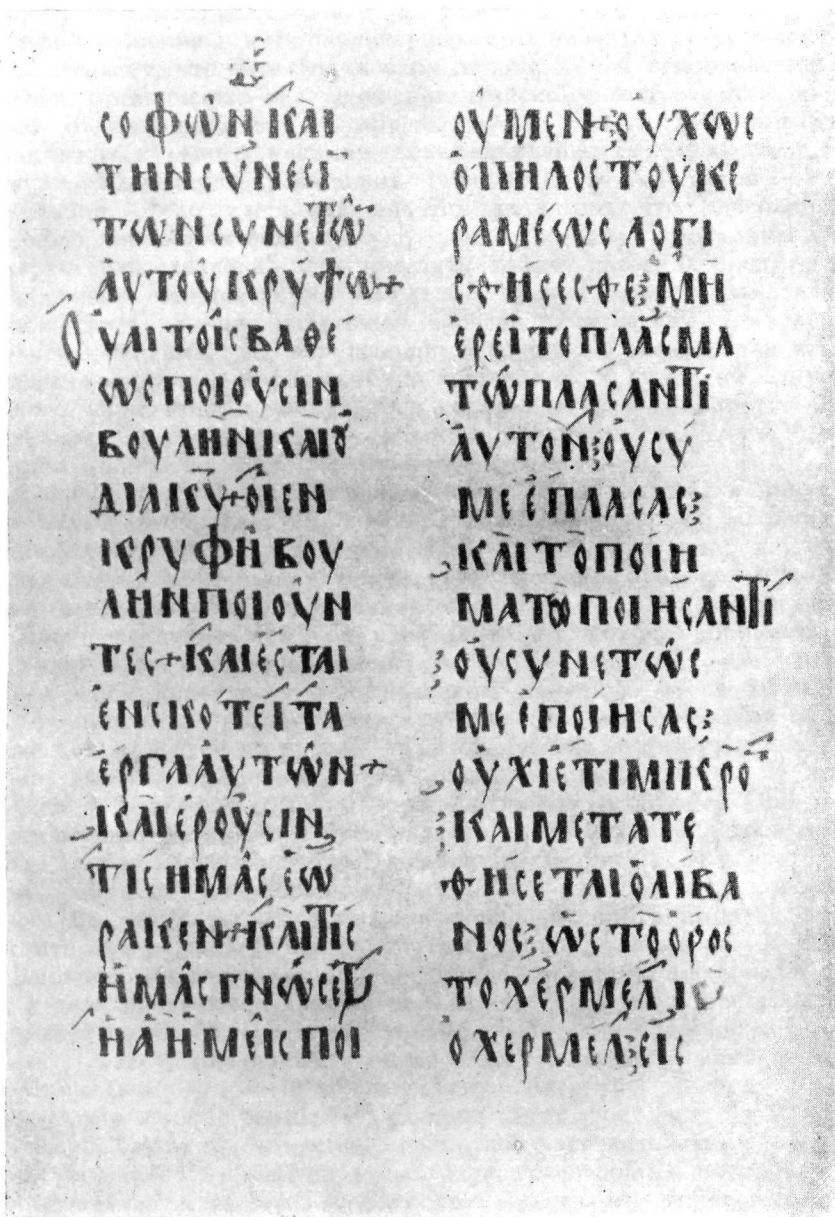 ϹΟΦΩΝ ΚΑΙ
ΤΗΝ ϹΥΝΕϹΙ
ΤΩΝ ϹΥΝΕΤΩ
ΑΥΤΟΥ ΚΡΥΨΩ+
ΟΥΑΙ ΤΟΙϹ ΒΑΘΕ
ΩϹ ΠΟΙΟΥϹΙΝ
ΒΟΥΛΗΝ ΚΑΙ ΟΥ
ΔΙΑ ΚΥ+ΟΙ ΕΝ
ΚΡΥΦΗ ΒΟΥ
ΛΗΝ ΠΟΙΟΥΝ
ΤΕϹ+ΚΑΙ ΕϹΤΑΙ
ΕΝ ϹΚΟΤΕΙ ΤΑ
ΕΡΓΑ ΑΥΤΩΝ+
ΚΑΙ ΕΡΟΥϹΙΝ
ΤΙϹ ΗΜΑϹ ΕΩ
ΡΑΚΕΝ+ΚΑΙ ΤΙϹ
ΗΜΑϹ ΓΝΩϹΕΤ
Η Α ΗΜΕΙϹ ΠΟΙ
ΟΥΜΕΝ+ΟΥΧ ΩϹ
Ο ΠΗΛΟϹ ΤΟΥ ΚΕ
ΡΑΜΕΩϹ ΛΟΓΙ
ϹΘΗϹΕϹΘΕ ΜΗ
ΕΡΕΙ ΤΟ ΠΛΑϹΜΑ
ΤΩ ΠΛΑϹΑΝΤΙ
ΑΥΤΟ ΟΥ ϹΥ
ΜΕ ΕΠΛΑϹΑϹ
ΚΑΙ ΤΟ ΠΟΙΗ
ΜΑ ΤΩ ΠΟΙΗϹΑΝΤΙ
ΟΥ ϹΥΝΕΤΩϹ
ΜΕ ΕΠΟΙΗϹΑϹ
ΟΥΧΙ ΕΤΙ ΜΙΚΡΟ
ΚΑΙ ΜΕΤΑΤΕ
ΘΗϹΕΤΑΙ Ο ΛΙΒΑ
ΝΟϹ ΩϹ ΤΟ ΟΡΟϹ
ΤΟ ΧΕΡΜΕΛ Κ
Ο ΧΕΡΜΕΛ ΕΙϹ